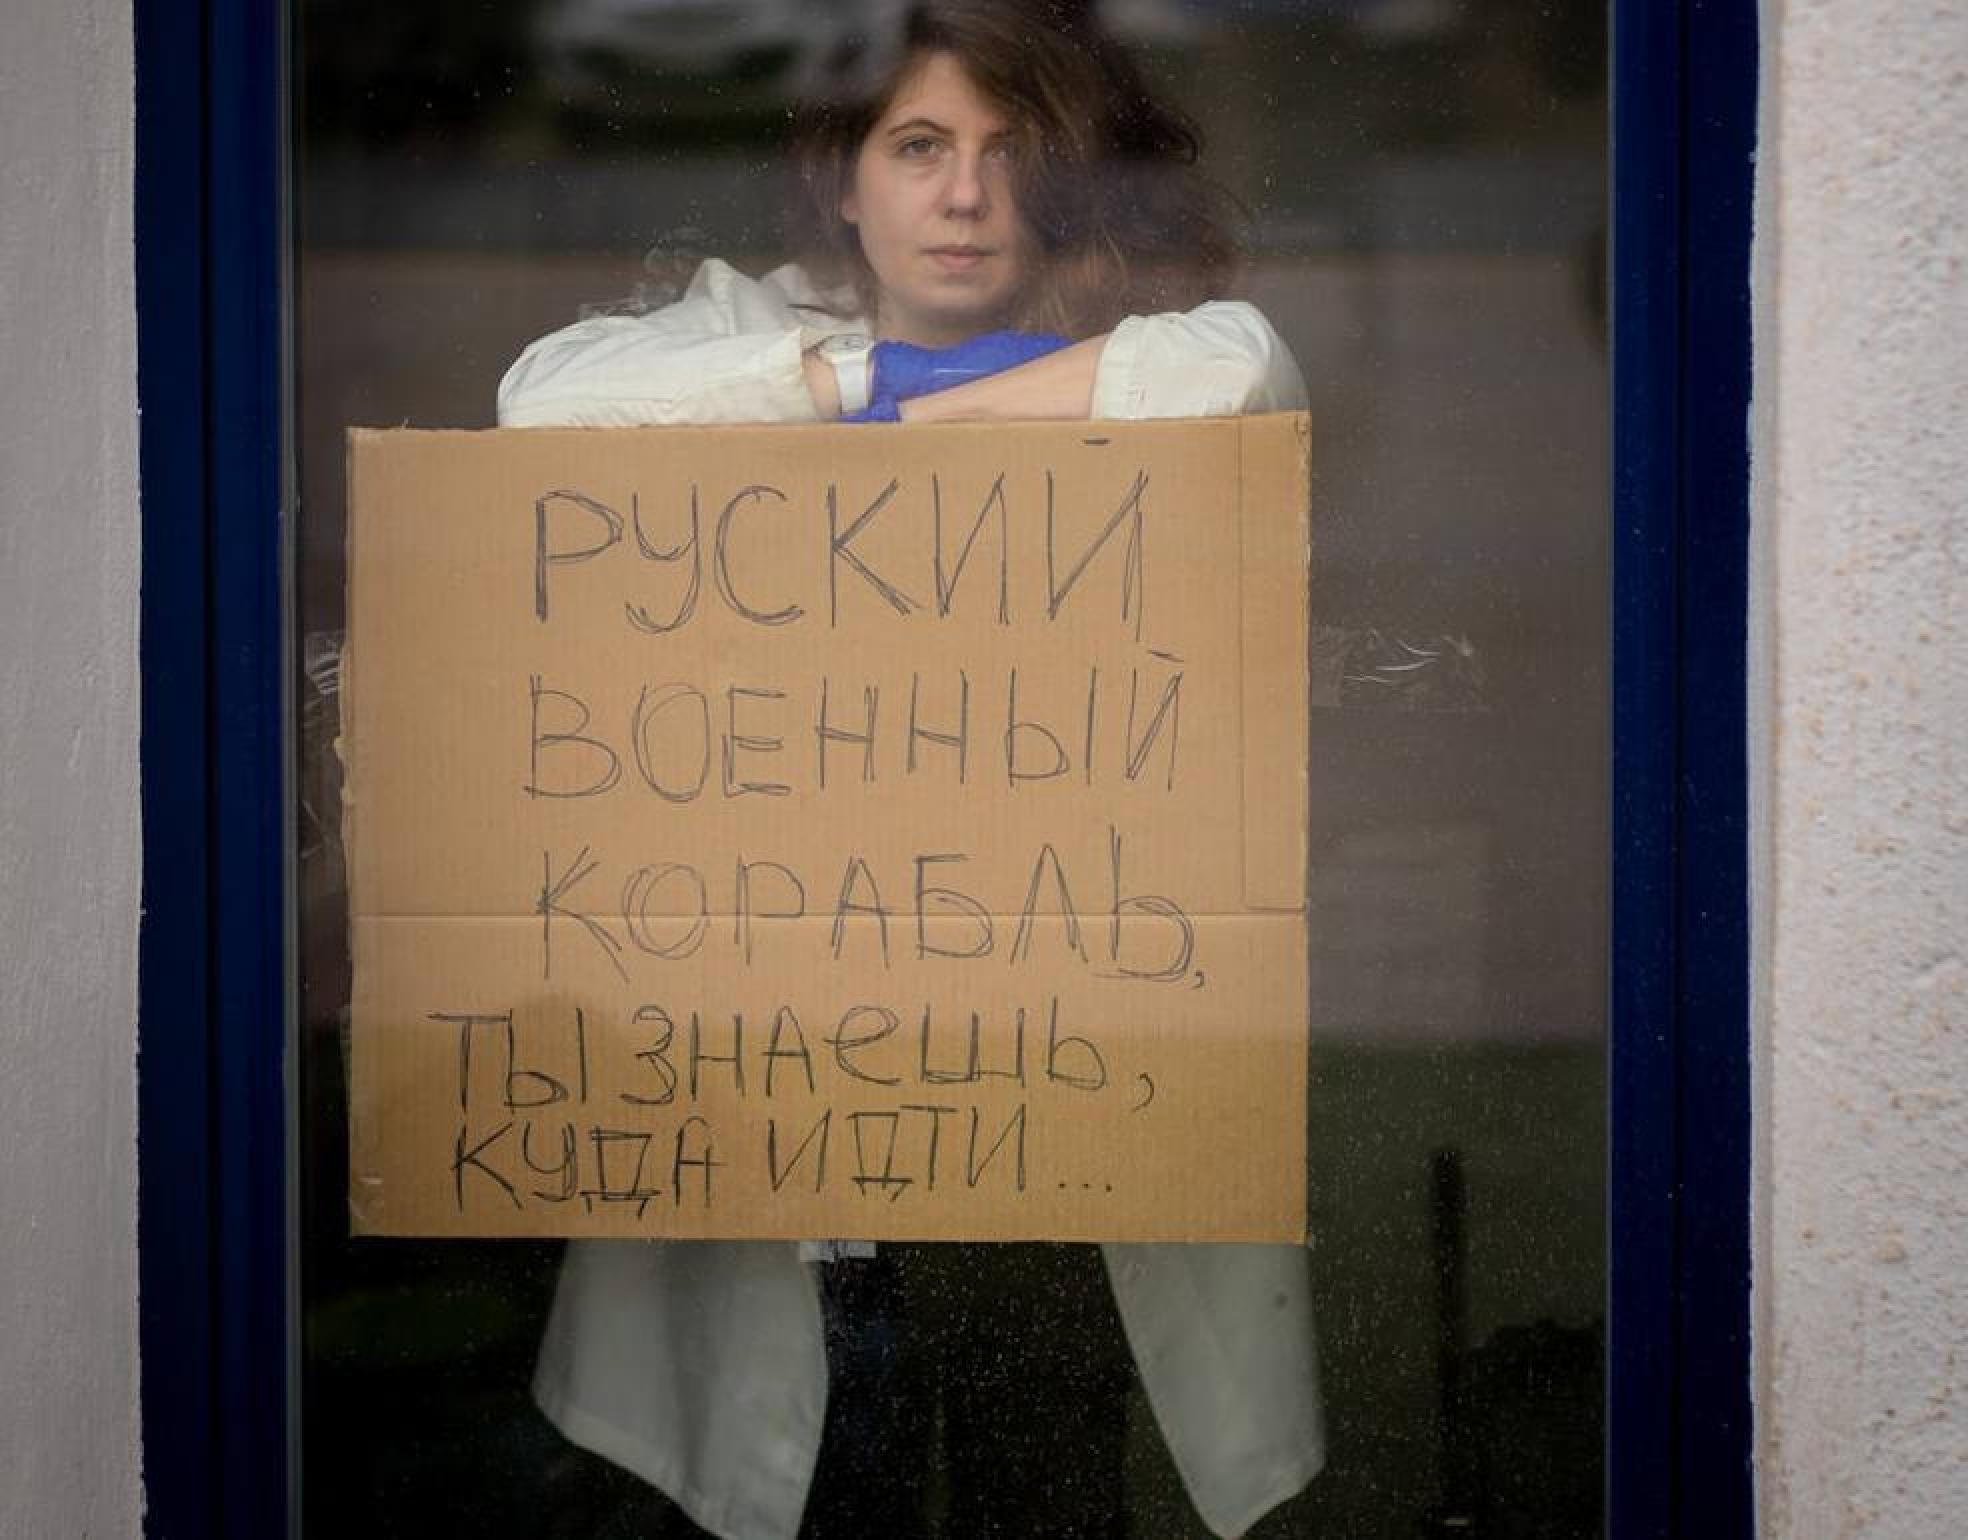 РУСКИЙ
ВОЕННЫЙ
КОРАБЛЬ,
ТЫ ЗНАЕШЬ,
КУДА ИДТИ...